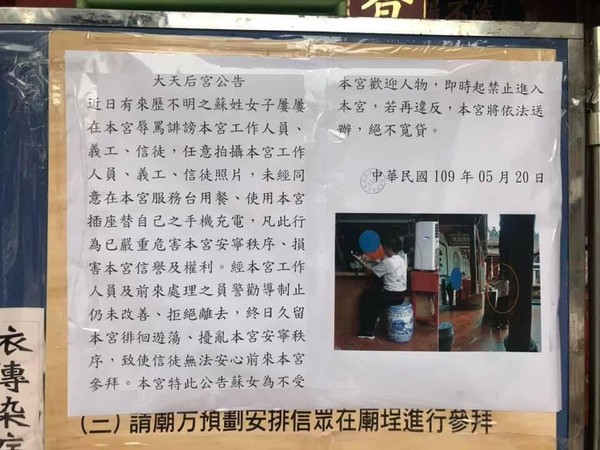 大天后宮公告
近日有來歷不明之蘇姓女子屢屢
在本宮辱罵誹謗本宮工作人員、
義工、信徒，任意拍攝本宮工作
人員、義工、信徒照片，未經同
意在本宮服務台用餐、使用本宮
插座替自己之手機充電，凡此行
為已嚴重危害本宮安寧秩序、損
害本宮信譽及權利。經本宮工作
人員及前來處理之員警勸導制止
仍未改善、拒絕離去，終日久留
本宮徘徊遊蕩、擾亂本宮安寧秩
序，致使信徒無法安心前來本宮
參拜。本宮特此公告蘇女為不受
本宮歡迎人物，即時起禁止進入
本宮，若再違反，本宮將依法送
辦，絕不寬貸。
中華民國 109 年 05 月 20 日
衣傳染
(三) 請廟方預劃安排信眾在廟埕進行參拜